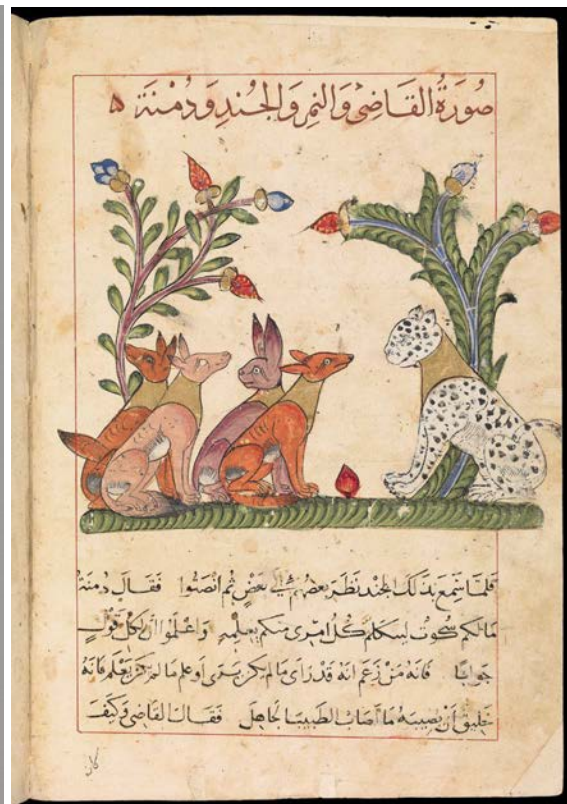 صُورَةُ القَاضِي وَالنمِرِ وَالجُندِ وَدُمْنَة ه
فلمَّا سَمِع بذلك الجُند نَظر بَعضُهم الي بَعضٍ ثم انصَتُوا فقال دُمنَة
ما لكم سُكوت ليتكلم كُل امرى منكم بعلمِه وَاعلموا ان لكل قول
جوابًا فانه مَن زَعم انه قد راى ما لم يكن يرى او علم ما لم يكن يعلم فانه
خليق أن يصيبه ما أصاب الطبيب الجاهل فقال القاضى وكيف
كان